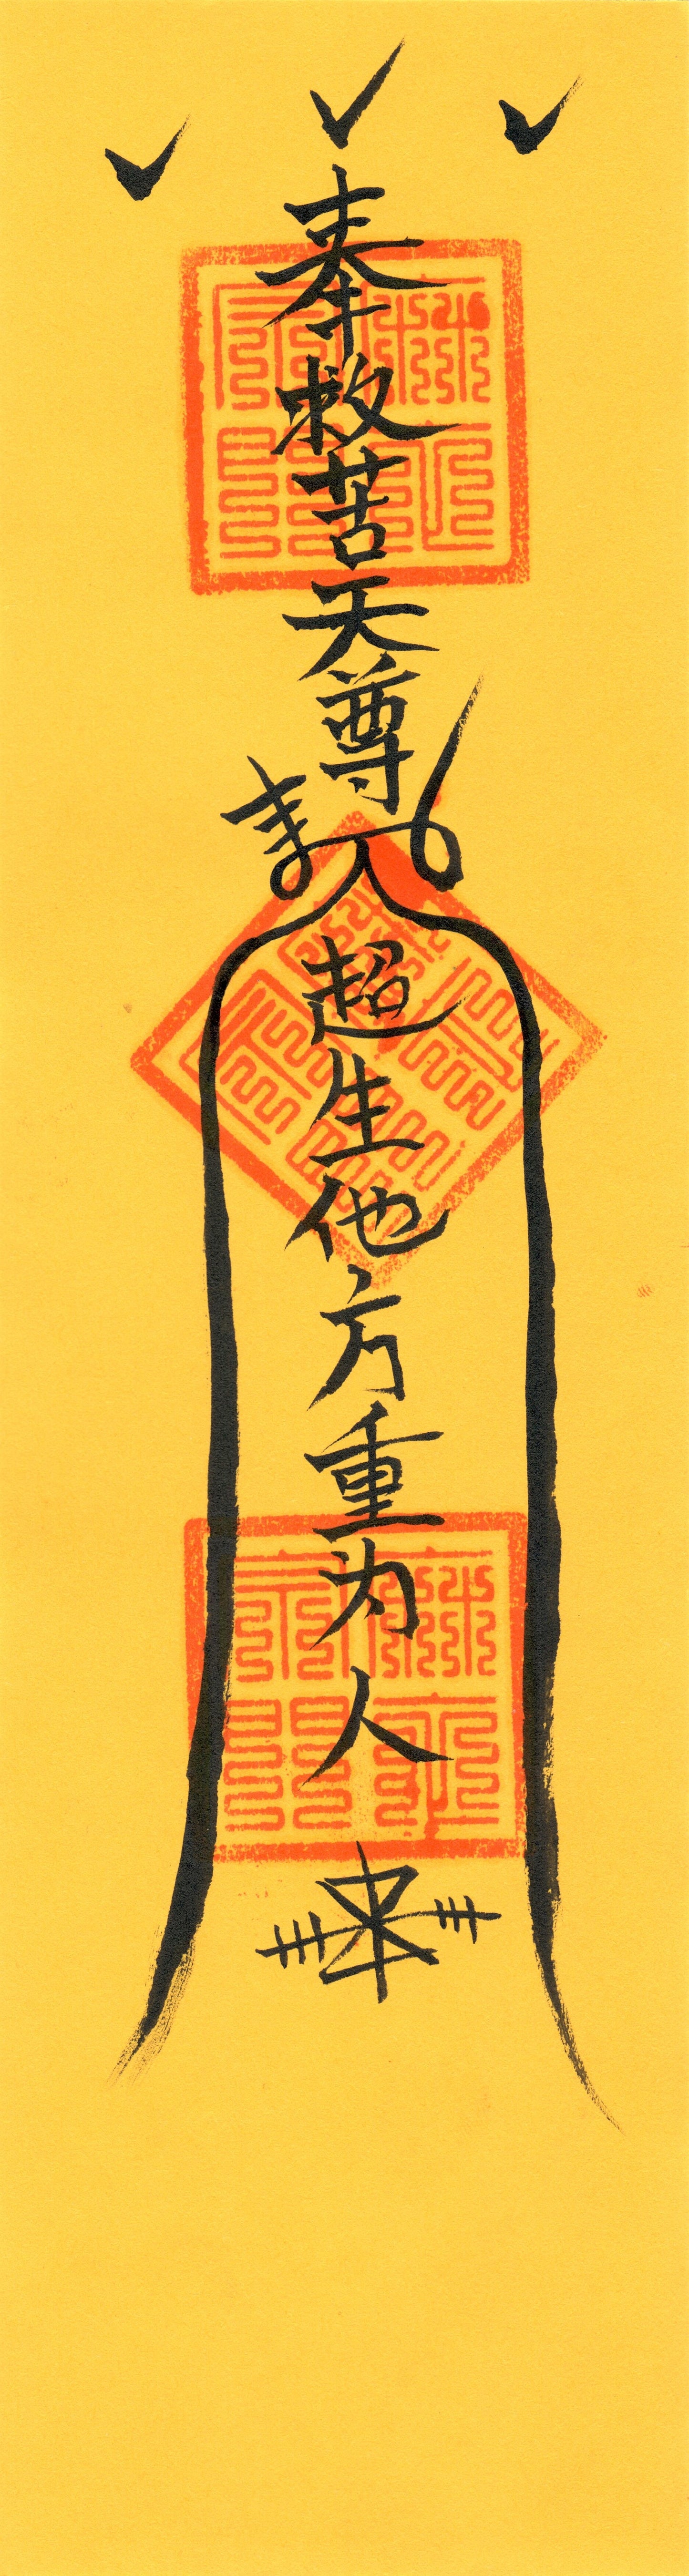 奉救苦天尊
超生他方重为人